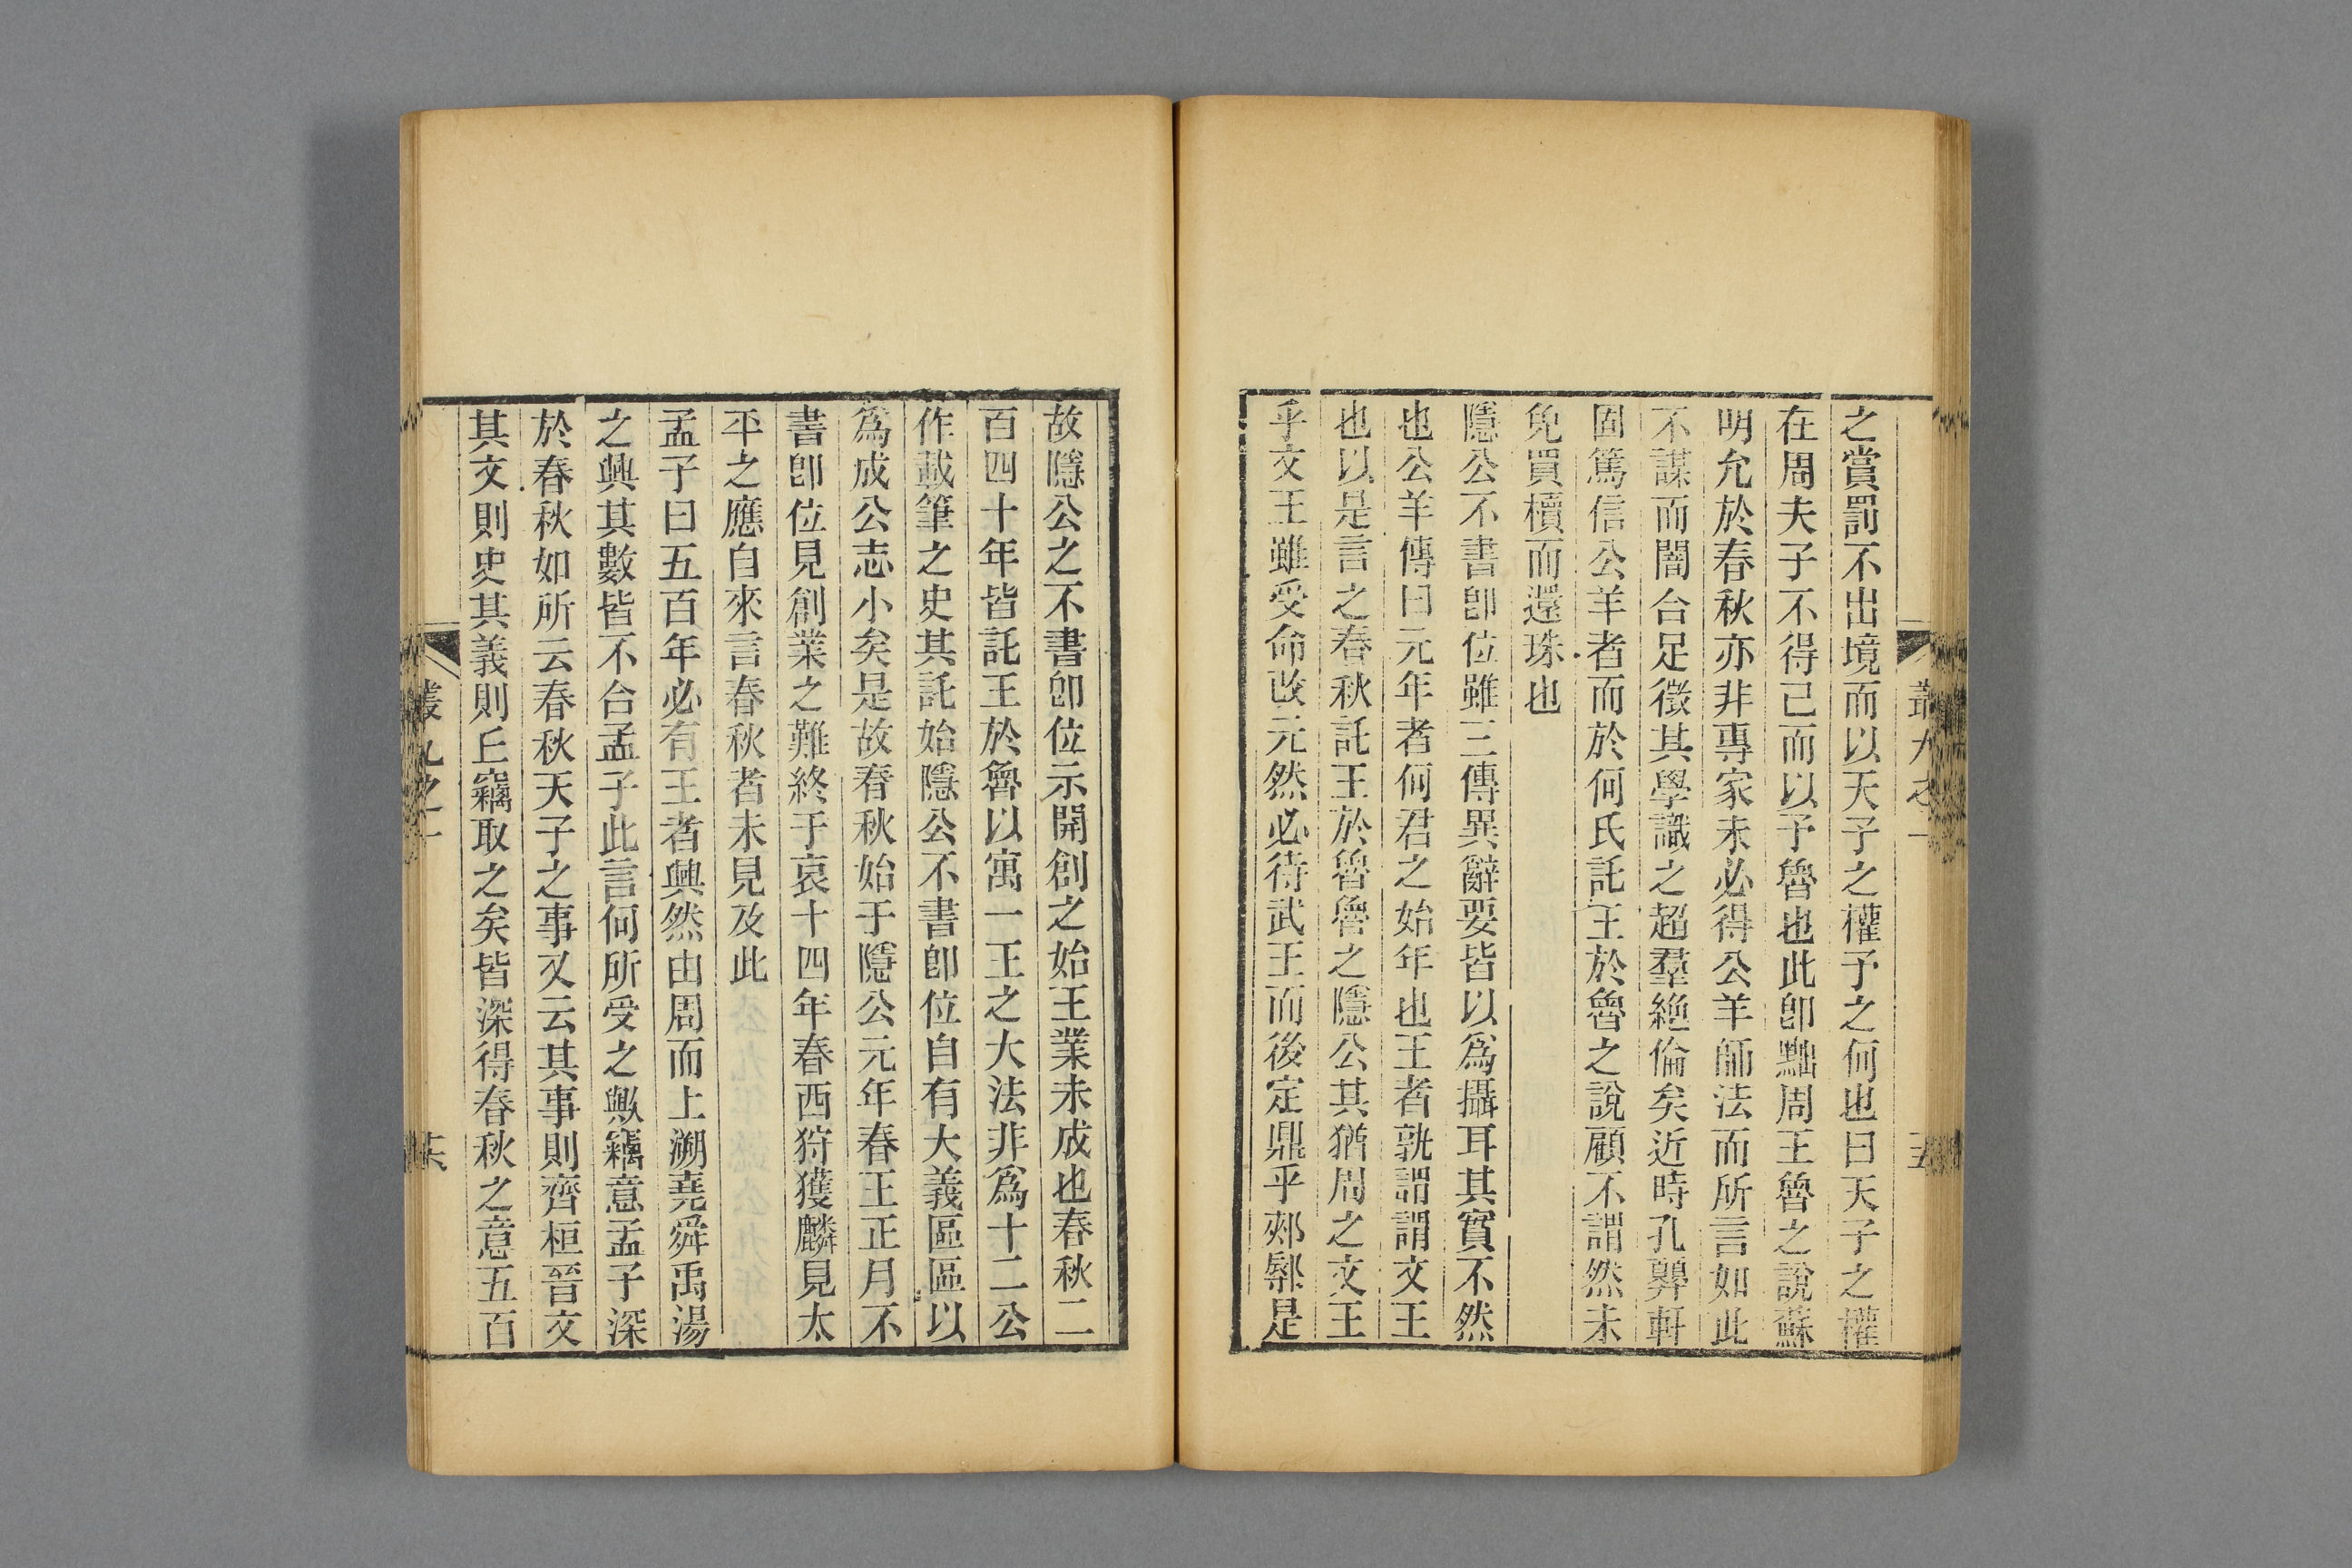 之賞罰不出境而以天子之權予之何也曰天子之權
在周夫子不得已而以予魯也此卽黜周王魯之說蘇
明允於春秋亦非專家未必得公羊師法而所言如此
不謀而闇合足徵其學識之超羣絶倫矣近時孔㢲軒
固篤信公羊者而於何氏託王於魯之說顧不謂然未
免買櫝而還珠也
隱公不書卽位雖三傳異辭要皆以爲攝耳其實不然
也公羊傳曰元年者何君之始年也王者孰謂謂文王
也以是言之春秋託王於魯魯之隱公其猶周之文王
乎文王雖受命改元然必待武王而後定鼎乎郟鄏是
叢九之一
五
故隱公之不書卽位示開創之始王業未成也春秋二
百四十年皆託王於魯以寓一王之大法非爲十二公
作載筆之史其託始隱公不書卽位自有大義區區以
爲成公志小矣是故春秋始于隱公元年春王正月不
書卽位見創業之難終于哀十四年春西狩獲麟見太
平之應自來言春秋者未見及此
孟子曰五百年必有王者興然由周而上溯堯舜禹湯
之興其數皆不合孟子此言何所受之歟竊意孟子深
於春秋如所云春秋天子之事又云其事則齊桓晉文
其文則史其義則丘竊取之矣皆深得春秋之意五百
叢九之一